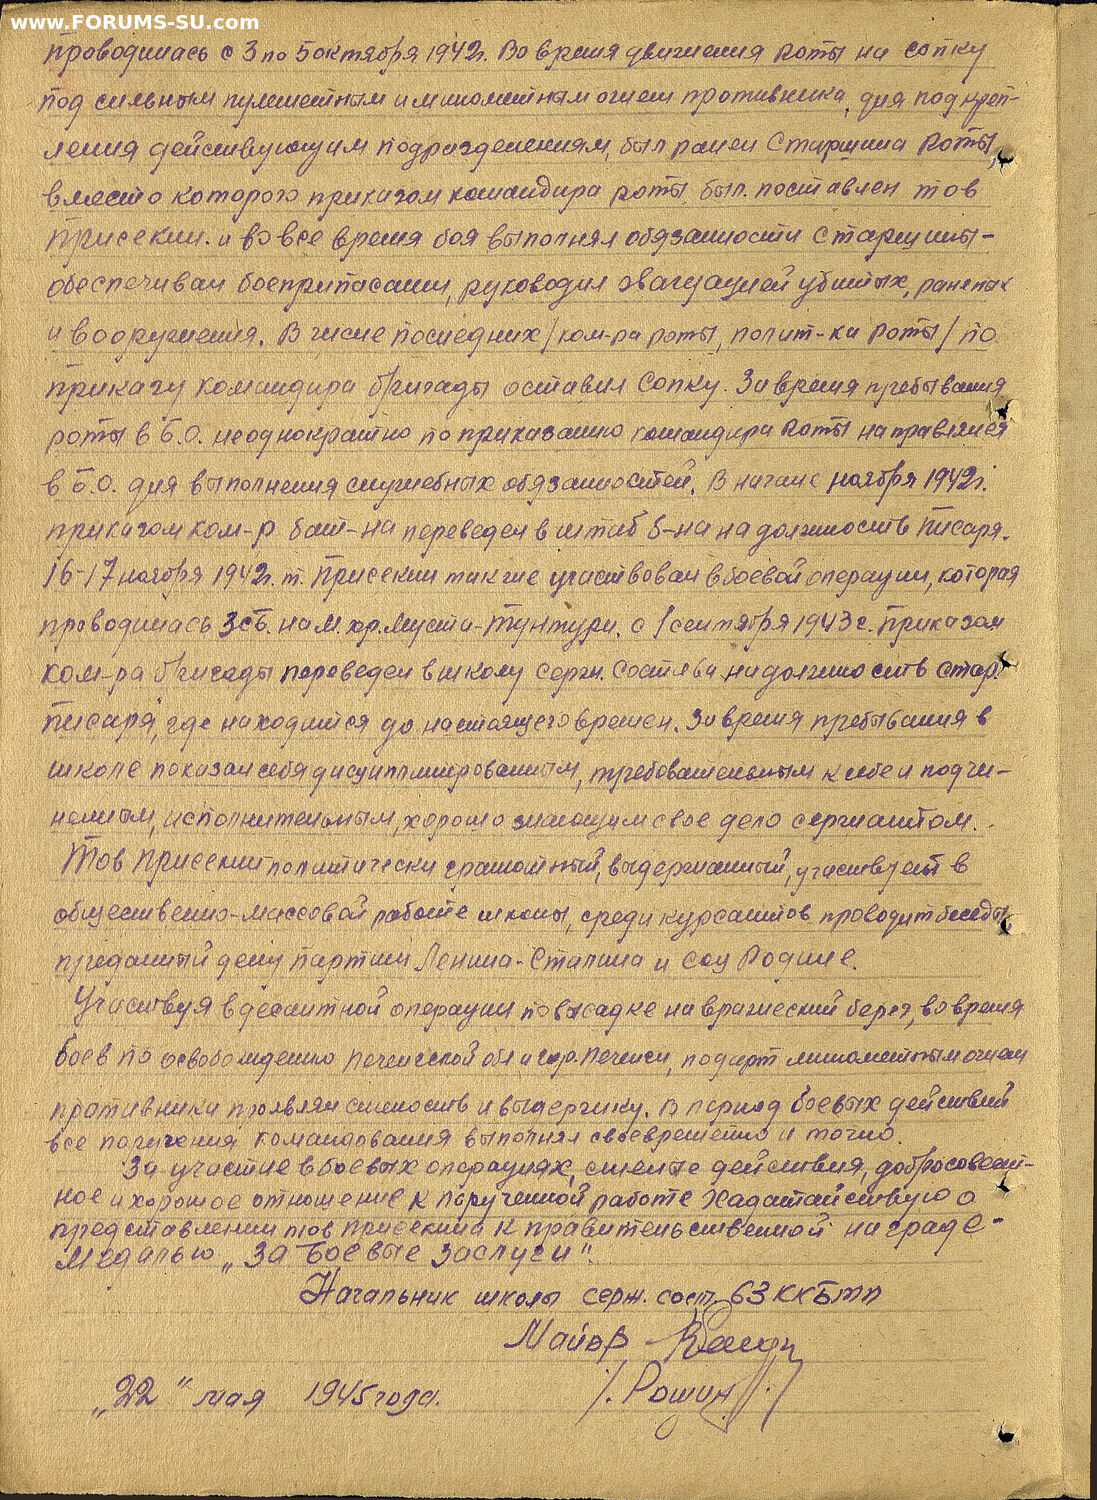 www.FORUMS-SU.com
проводилась с 3 по 5 октября 1942г. Во время движения роты на сопку
под сильным пулеметным и минометным огнем противника, для подкреп-
ления действующим подразделениям, был ранен Старшина роты,
вместо которого приказом командира роты был поставлен тов
Присекин. и во все время боя выполнял обязанности старшины-
обеспечивал боеприпасами, руководил эвакуацией убитых, раненых
и вооружения. В числе последних /ком-ра роты, полит-ка роты/ по
приказу командира бригады оставил сопку. За время пребывания
роты в Б.О. неоднократно по приказанию командира роты направлялся
в Б.О. для выполнения служебных обязанностей. В начале ноября 1942г.
приказом ком-р бат-на переведен в штаб б-на на должность писаря.
16-17 ноября 1942г. т. Присекин также участвовал в боевой операции, которая
проводилась 3сб. на М. хр. Муста-Тунтури. с 1 сентября 1943г. Приказом
ком-ра бригады переведен в школу серж. состава на должность стар.
писаря, где находится до настоящего времен. За время пребывания в
школе показал себя дисциплинированным, требовательным к себе и подчи-
ненным, исполнительным, хорошо знающим свое дело сержантом.
Тов Присекин политически грамотный, выдержанный, участвует в
общественно-массовой работе школы, среди курсантов проводит беседы,
преданный делу партии Ленина-Сталина и соц Родине.
Участвуя в десантной операции по высадке на вражеский берег, во время
боев по освобождению Печенгской обл и гор. Печенги, под арт минометным огнем
противника проявлял смелость и выдержку. В период боевых действий
все поручения командования выполнял своевременно и точно.
За участие в боевых операциях, смелые действия, добросовест-
ное и хорошое отношение к порученной работе Хадатайствую о
представлении тов Присекина к правительственной награде-
Медалью „За Боевые заслуги".
Начальник школы серж. сост. 63 ККБмп
Майор
/. Рошин ./
„22" мая 1945 года.